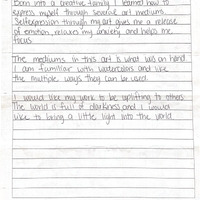 Born into a creative family I learned how to
express myself through several art mediums.
Self-expression through my art gives me a release
of emotion, relaxes my anxiety and helps me
focus.
The mediums in this art is what was on hand.
I am familiar with watercolors and like
the multiple ways they can be used.
I would like my work to be uplifting to others.
The world is full of darkness and I would
like to bring a little light into the world.